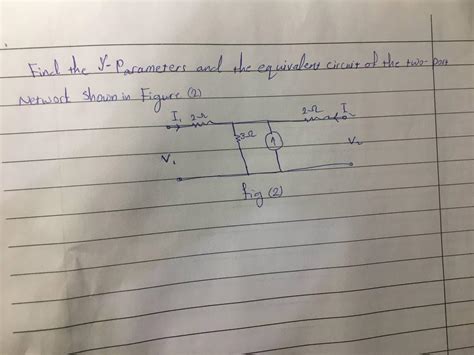 Find the Y-Parameters and the equivalent circuit of the two-port
Network shown in Figure (2)
I₁ 2Ω 2Ω I
3Ω
V₁ V₂
fig (2)